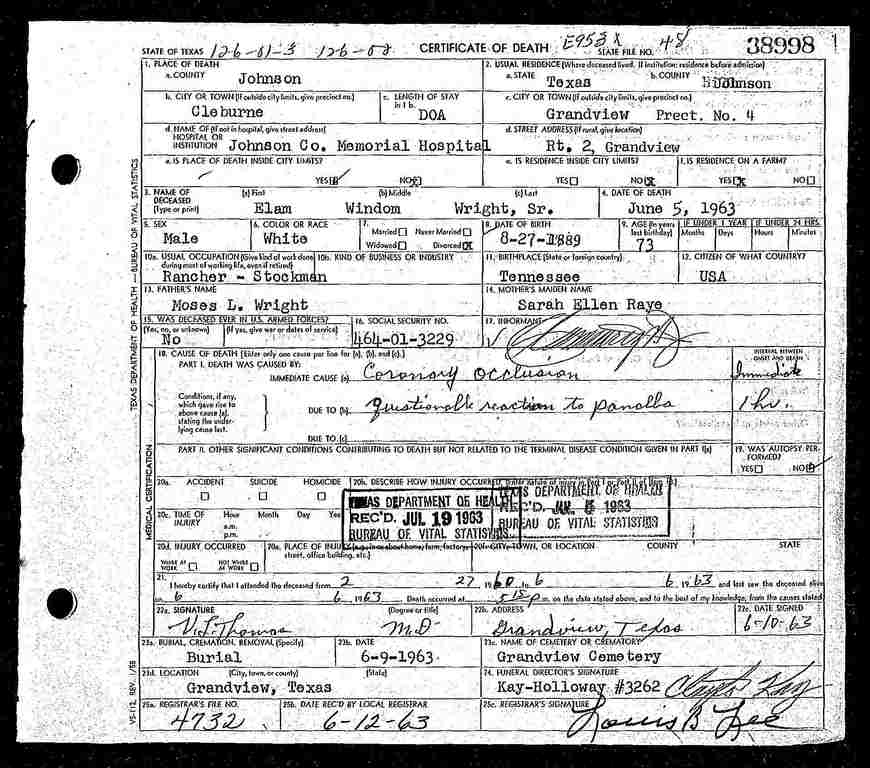 STATE OF TEXAS 126-01-3 126-02 CERTIFICATE OF DEATH E953X STATE FILE NO. 48 38998
1. PLACE OF DEATH
a. COUNTY Johnson
2. USUAL RESIDENCE (Where deceased lived. If institution: residence before admission)
a. STATE Texas b. COUNTY Johnson
b. CITY OR TOWN (If outside city limits, give precinct no.) Cleburne
c. LENGTH OF STAY in 1b. DOA
c. CITY OR TOWN (If outside city limits, give precinct no.)
Grandview Prect. No. 4
d. NAME OF (If not in hospital, give street address)
HOSPITAL OR
INSTITUTION Johnson Co. Memorial Hospital
d. STREET ADDRESS (If rural, give location)
Rt. 2, Grandview
e. IS PLACE OF DEATH INSIDE CITY LIMITS?
YES NO
e. IS RESIDENCE INSIDE CITY LIMITS?
YES NO
f. IS RESIDENCE ON A FARM?
YES NO
3. NAME OF DECEASED (Type or print)
(a) First (b) Middle (c) Last
Elam Windom Wright, Sr.
4. DATE OF DEATH
June 5, 1963
5. SEX
Male
6. COLOR OR RACE
White
7. Married Never Married
Widowed Divorced
8. DATE OF BIRTH
8-27-1889
9. AGE (In years last birthday) 73
IF UNDER 1 YEAR Months Days
IF UNDER 24 HRS. Hours Minutes
10a. USUAL OCCUPATION (Give kind of work done during most of working life, even if retired)
Rancher - Stockman
10b. KIND OF BUSINESS OR INDUSTRY
11. BIRTHPLACE (State or foreign country)
Tennessee
12. CITIZEN OF WHAT COUNTRY?
USA
13. FATHER'S NAME
Moses L. Wright
14. MOTHER'S MAIDEN NAME
Sarah Ellen Raye
15. WAS DECEASED EVER IN U.S. ARMED FORCES?
(Yes, no, or unknown) (If yes, give war or dates of service)
No
16. SOCIAL SECURITY NO.
464-01-3229
17. INFORMANT
18. CAUSE OF DEATH [Enter only one cause per line for (a), (b), and (c).]
PART I. DEATH WAS CAUSED BY:
IMMEDIATE CAUSE (a) Coronary occlusion
INTERVAL BETWEEN ONSET AND DEATH
Immediate
Conditions, if any, which gave rise to above cause (a), stating the underlying cause last.
DUE TO (b) Questionable reaction to panalba 1 hr.
DUE TO (c)
PART II. OTHER SIGNIFICANT CONDITIONS CONTRIBUTING TO DEATH BUT NOT RELATED TO THE TERMINAL DISEASE CONDITION GIVEN IN PART I(a)
19. WAS AUTOPSY PERFORMED?
YES NO
20a. ACCIDENT SUICIDE HOMICIDE
20b. DESCRIBE HOW INJURY OCCURRED. (Enter nature of injury in Part I or Part II of item 18.)
TEXAS DEPARTMENT OF HEALTH
REC'D. JUL 19 1963
BUREAU OF VITAL STATISTICS
TEXAS DEPARTMENT OF HEALTH
REC'D. 1963
BUREAU OF VITAL STATISTICS
20c. TIME OF INJURY Hour Month Day Year
a.m.
p.m.
20d. INJURY OCCURRED
WHILE AT WORK NOT WHILE AT WORK
20e. PLACE OF INJURY (e.g., in or about home, farm, factory, street, office building, etc.)
20f. CITY, TOWN, OR LOCATION COUNTY STATE
21. I hereby certify that I attended the deceased from 2 27 1960 to 6 6 1963 and last saw the deceased alive
on 6 6 1963 Death occurred at 515 p m. on the date stated above, and to the best of my knowledge, from the causes stated
22a. SIGNATURE (Degree or title)
V.L. Thomas M.D.
22b. ADDRESS
Grandview, Texas
22c. DATE SIGNED
6-10-63
23a. BURIAL, CREMATION, REMOVAL (Specify)
Burial
23b. DATE
6-9-1963
23c. NAME OF CEMETERY OR CREMATORY
Grandview Cemetery
23d. LOCATION (City, town, or county) (State)
Grandview, Texas
24. FUNERAL DIRECTOR'S SIGNATURE
Kay-Holloway #3262 Clayton Kay
25a. REGISTRAR'S FILE NO.
4732
25b. DATE REC'D BY LOCAL REGISTRAR
6-12-63
25c. REGISTRAR'S SIGNATURE
Louis B Lee
TEXAS DEPARTMENT OF HEALTH — BUREAU OF VITAL STATISTICS
MEDICAL CERTIFICATION
VS-112, REV. 1/58